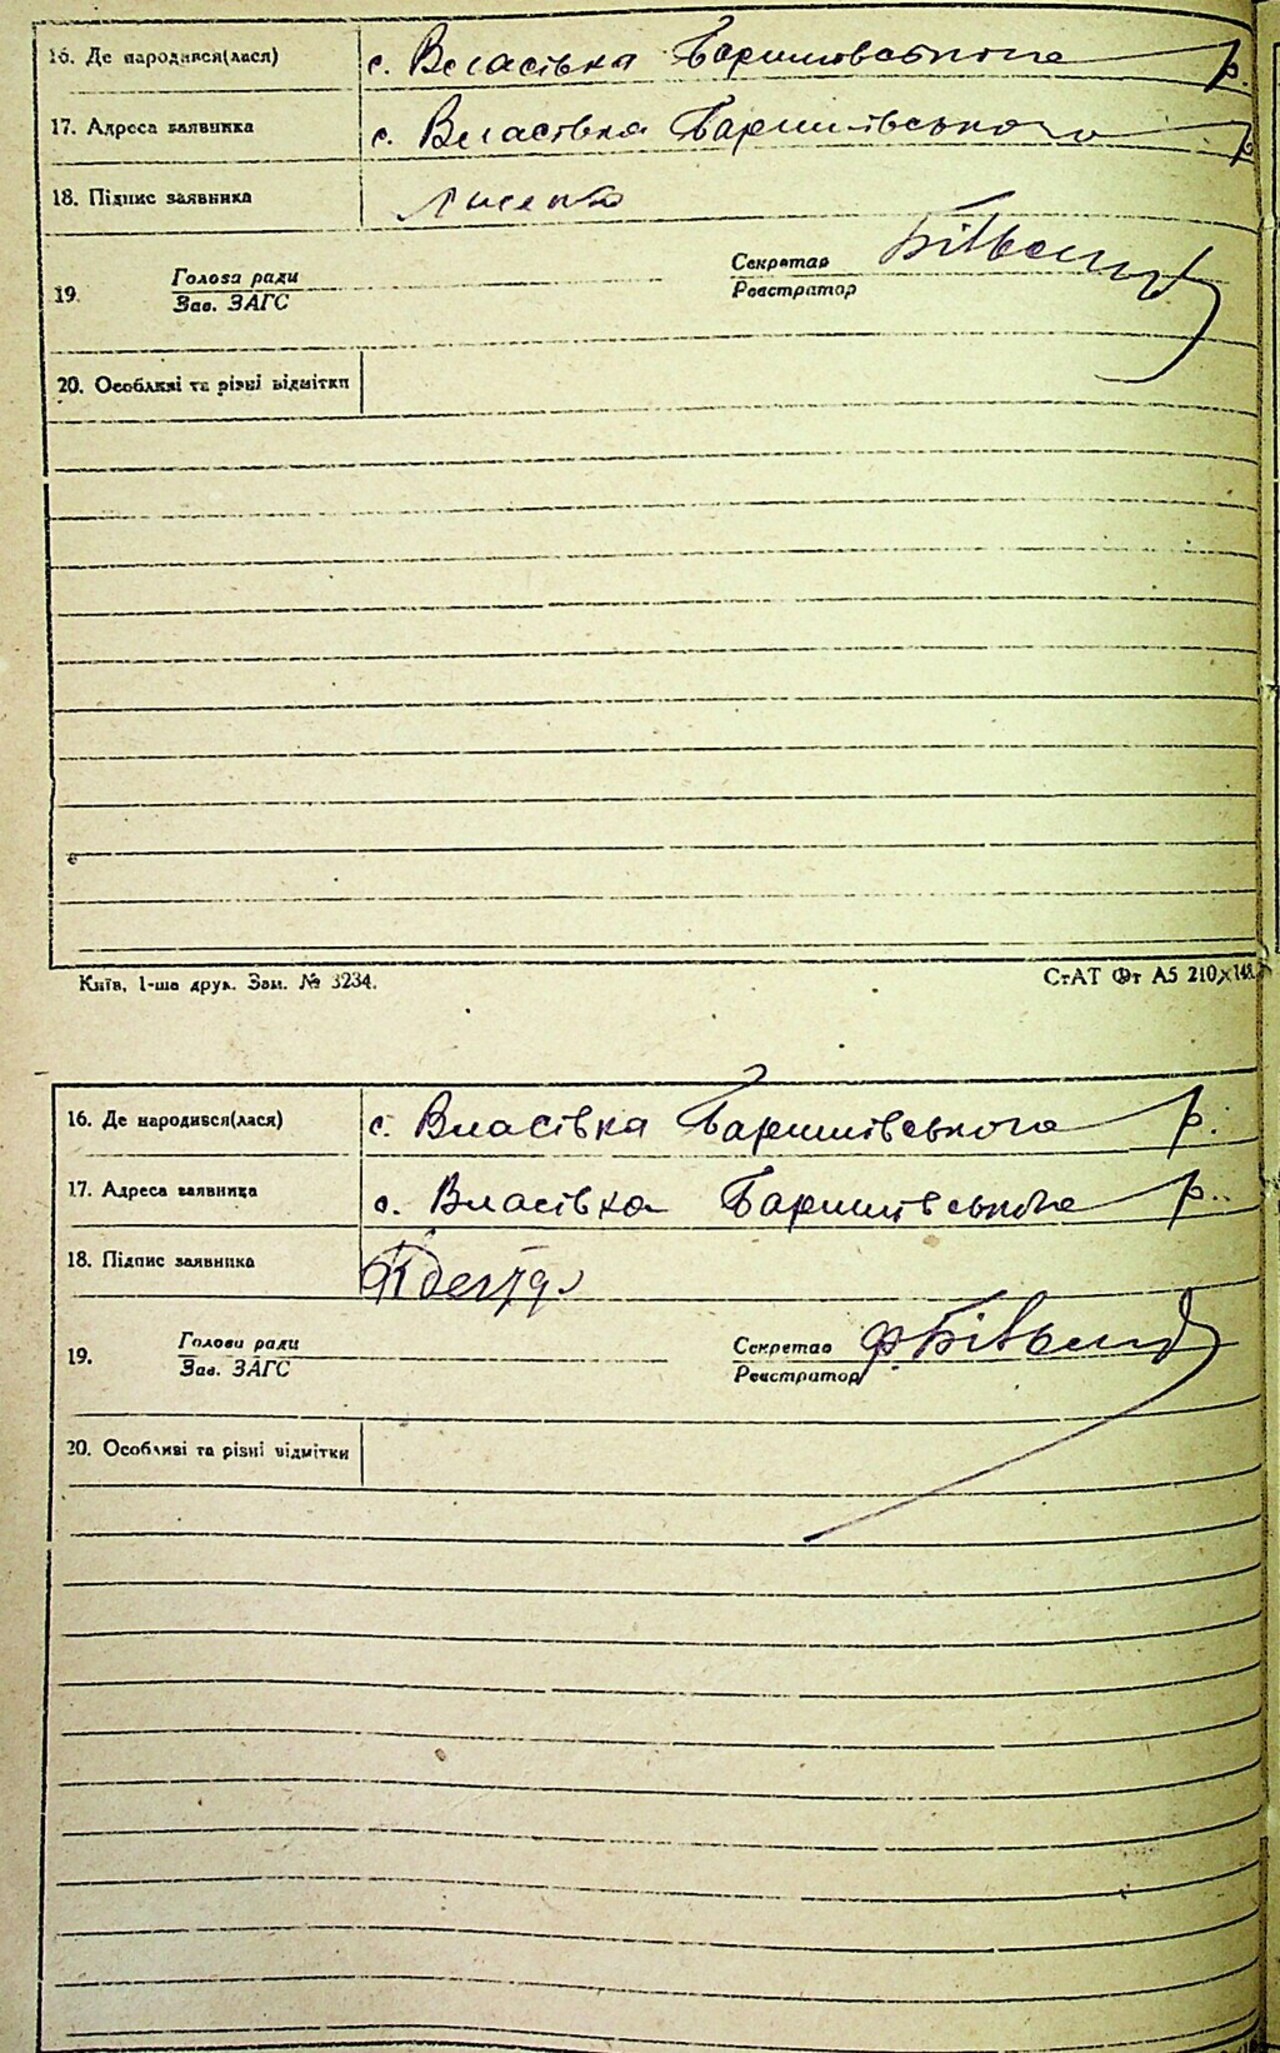 16. Де народився(лася) с. Власівка Баришівського р.
17. Адреса заявника с. Власівка Баришівського р.
18. Підпис заявника Лисенко
19. Голова ради Секретар
Зав. ЗАГС Реєстратор
20. Особливі та різні відмітки
Київ, 1-ша друк. Зам. № 3234. СтАТ Фт А5 210×148
16. Де народився(лася) с. Власівка Баришівського р.
17. Адреса заявника с. Власівка Баришівського р.
18. Підпис заявника
19. Голова ради Секретар
Зав. ЗАГС Реєстратор
20. Особливі та різні відмітки